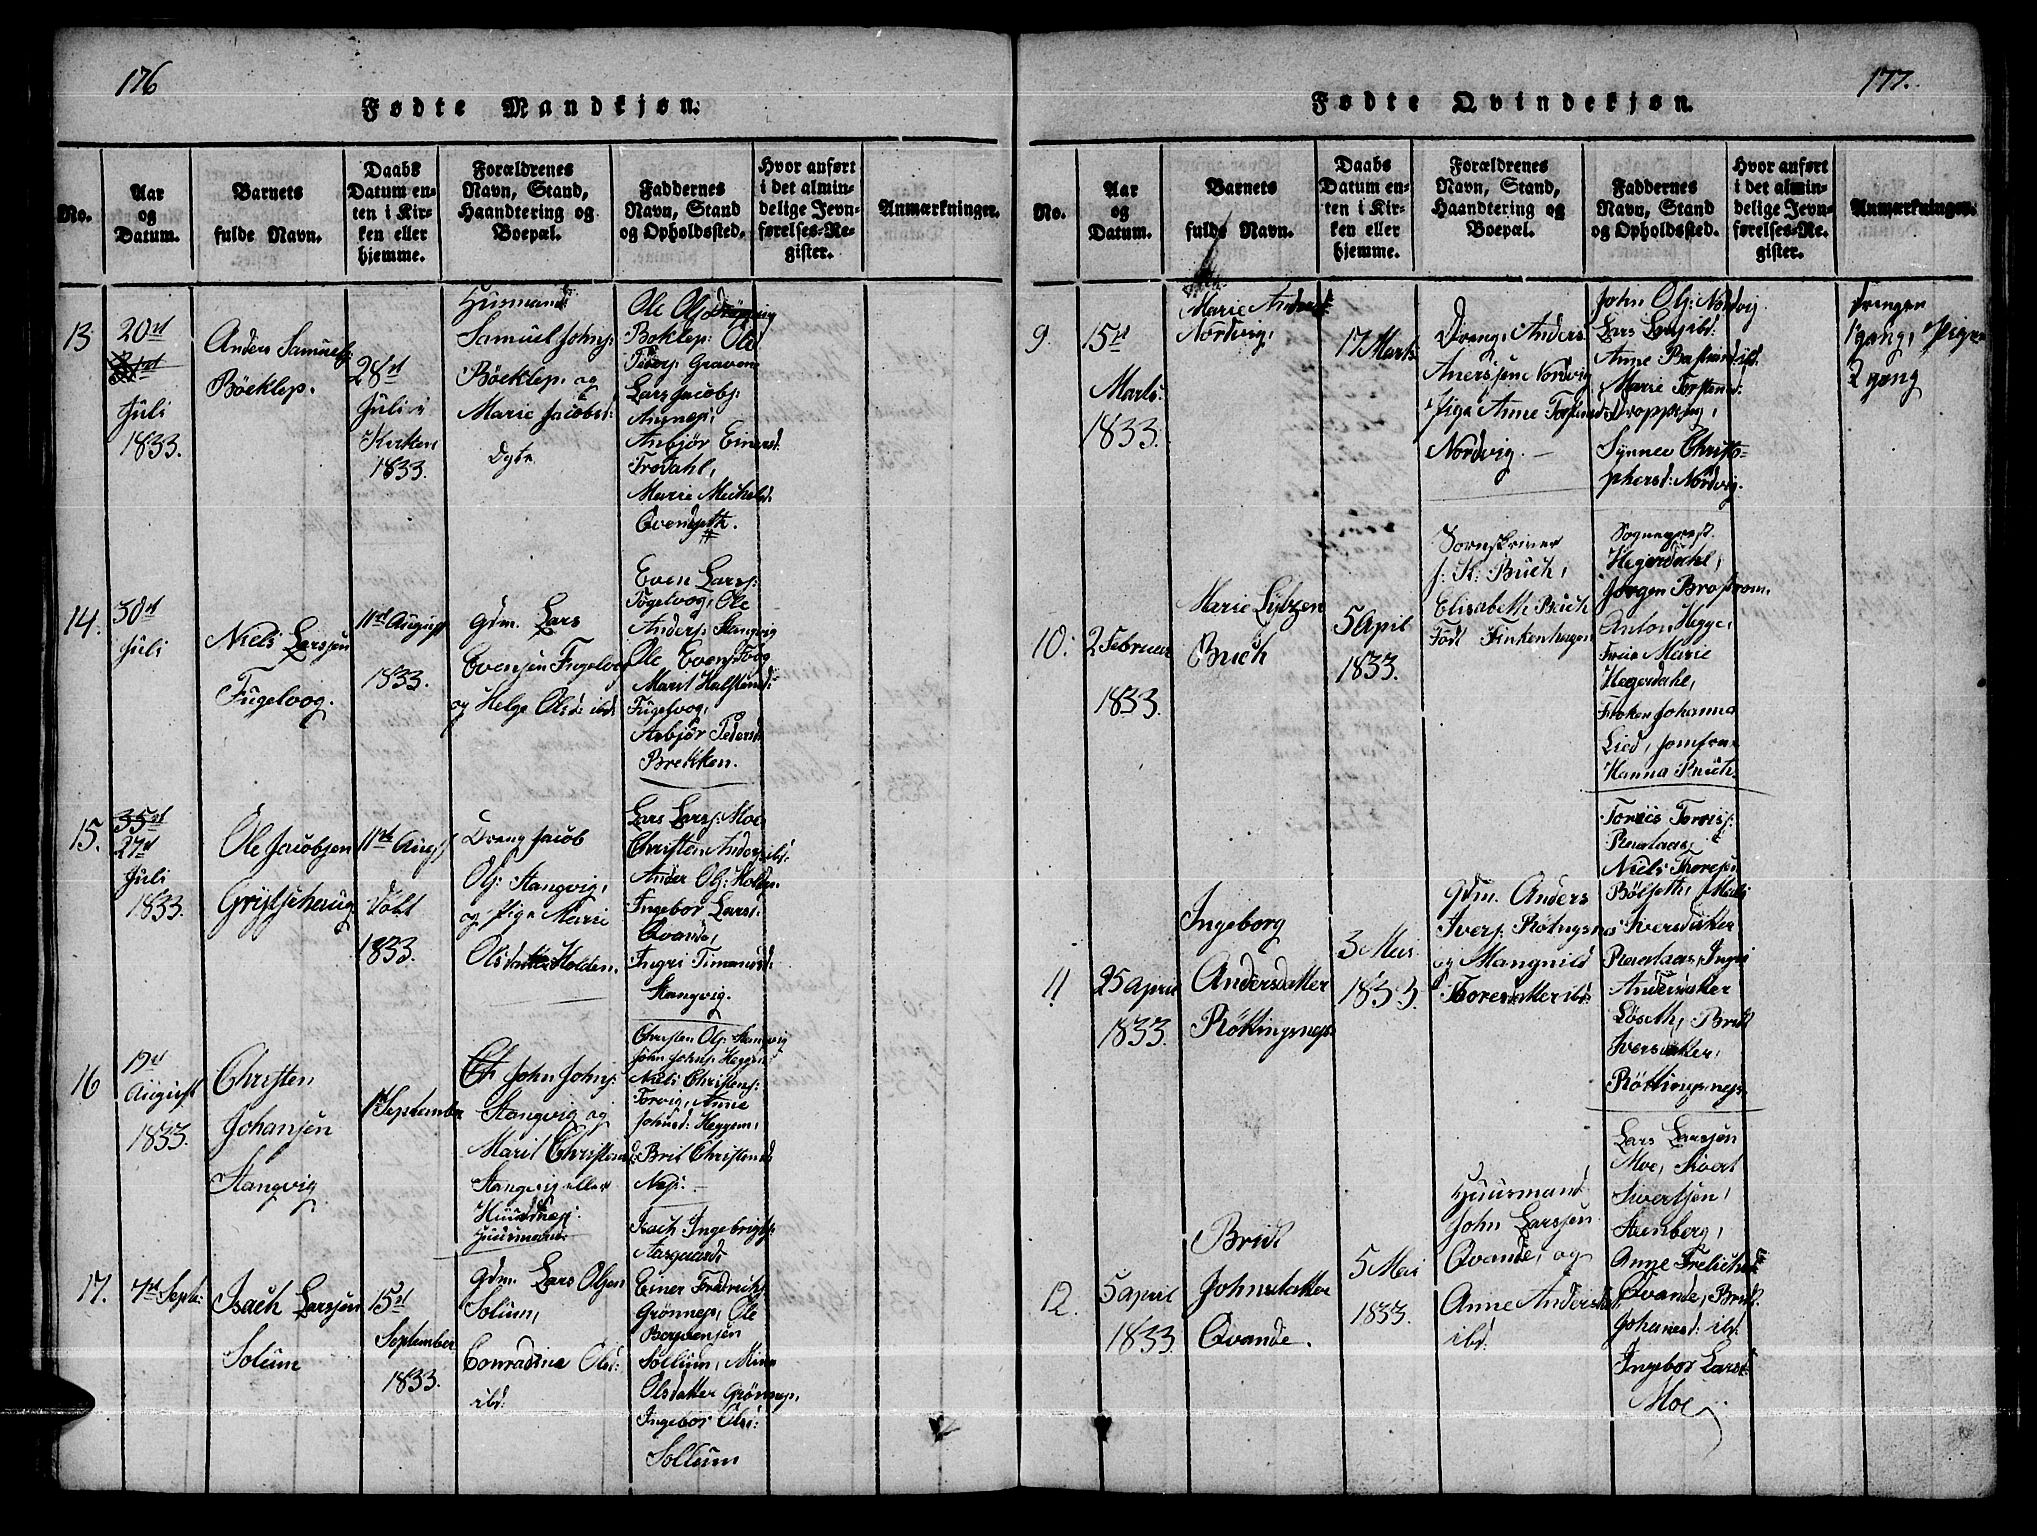 176
Fødte Mandkjøn.
No.
Aar
og
Datum.
Barnets
fulde Navn.
Daabs
Datum en-
ten i Kir-
ken eller
hjemme.
Forældrenes
Navn, Stand,
Haandtering og
Boepæl.
Faddernes
Navn, Stand
og Opholdssted.
Hvor anført
i det almin-
delige Jevn-
førelses-Re-
gister.
Anmærkninger.
13
20de
Juli
1833.
Anders Samuels:
Böeklep.
28de
Juli i
Kirken
1833.
Huusmand
Samuel Johns:
Böeklep, og
Marie Jacobsd:
Ole Ols:
Boklep: Ole
Peders: Graven
Lars Jacobs:
Anbjör Einersd:
Trodahl,
Marie Michelsd:
14.
30te
Juli
Niels Larssen
Fugelvog.
11te August
1833.
Gdm. Lars
Evensen Fugelvog
og Helge Olsd: ibd:
Even Lars:
Fugelvog, Ole
Anders: Stangvig
Ole Evens: Fog
Marit Halstensd:
Fugelvog,
Anbjör Pedersd:
Brekken.
15.
35te
27de
Juli
1833.
Ole Jacobsen
11te Aug
1833.
Dreng Jacob
Ols: Stangvig,
og Pige Marie
Olsdatter Holden.
Lars Lars: Moe
Christen Anders: ibd:
Ander Ols: Holden
Ingebor Larsd:
Qvande,
Ingri Timansd:
Stangvig.
16
19de
August
1833.
Christen
Johansen
Stangvig
1te September
Ch John Johns:
Stangvig og
Marit Christensd:
Stangvig eller
Huusmand.
Christen Ols: Stangvig
John Johns: Heggem
Niels Christens:
Torvig, Anne
Johnsd: Heggem,
Brit Christensd:
Næs. —
17.
4de Septe:
Isach Larssen
Solum
15de
September
1833.
Gdm. Lars Olsen
Solum,
Conradina Olsd:
ibd:
Isach Ingebrigts:
Aasgaard,
Einer Fredrichs:
Grönnes, Ole
Bergsvensen
Sollum, Mina
Olsdatter Grönnes,
Ingebor Olsd:
Sollum
177.
Fødte Qvindekjøn.
No.
Aar
og
Datum.
Barnets
fulde Navn.
Daabs
Datum en-
ten i Kir-
ken eller
hjemme.
Forældrenes
Navn, Stand,
Haandtering og
Boepæl.
Faddernes
Navn, Stand
og Opholdssted.
Hvor anført
i det almin-
delige Jevn-
førelses-Re-
gister.
Anmærkninger.
9.
15de
Marts:
1833.
Marie Andersd:
Nordvig,
17 Marts
Dreng, Anders
Anerssene Nordvig
Pige Anne Torstensd:
Nordvig. —
John Ols: Nordvig
Lars Lars: ibd:
Anne Bastiansd: ibd:
Marie Torstensd:
Droppping,
Synnee Christo-
phersd: Nordvig.
Drengen
1 gang, Pigen
2 gang
10.
2 Februar
1833.
Marie Lytzen
Buch
5 April
1833.
Sorenskriver
J: K: Buch,
Elisabeth Buch
Född Finkenhagen
Sogneprest
Hegerdahl,
Jörgen Broström.
Anton Hegge,
Frue Marie
Hegerdahl,
Froken Johanna
Lied, Jomfrue
Hanna Buch.
11
25 April
1833.
Ingeborg
Andersdatter
Röttingsnes
3 Mai
1833.
Gdm. Anders
Ivers: Rötingsnes
og Mangnild
Toresdatter ibd:
Niels Thoresen
Bölseth, Mali
Iversdatter
Renaas, Ingri
Andersdatter
Löseth, Brit
Iversdatter,
Röttingsnes.
12.
5 April
1833
Brit
Johnsdatter
Qvande.
5 Mai
1833.
Huusmand
John Larssen
Qvande, og
Anne Andersd:
ibd:
Lars Larssen
Moe, Sivert
Sivertsen,
Stenberg,
Anne Frelichsd:
Qvande, Brit
Johanesd: ibd:
Ingebor Larsd:
Moe